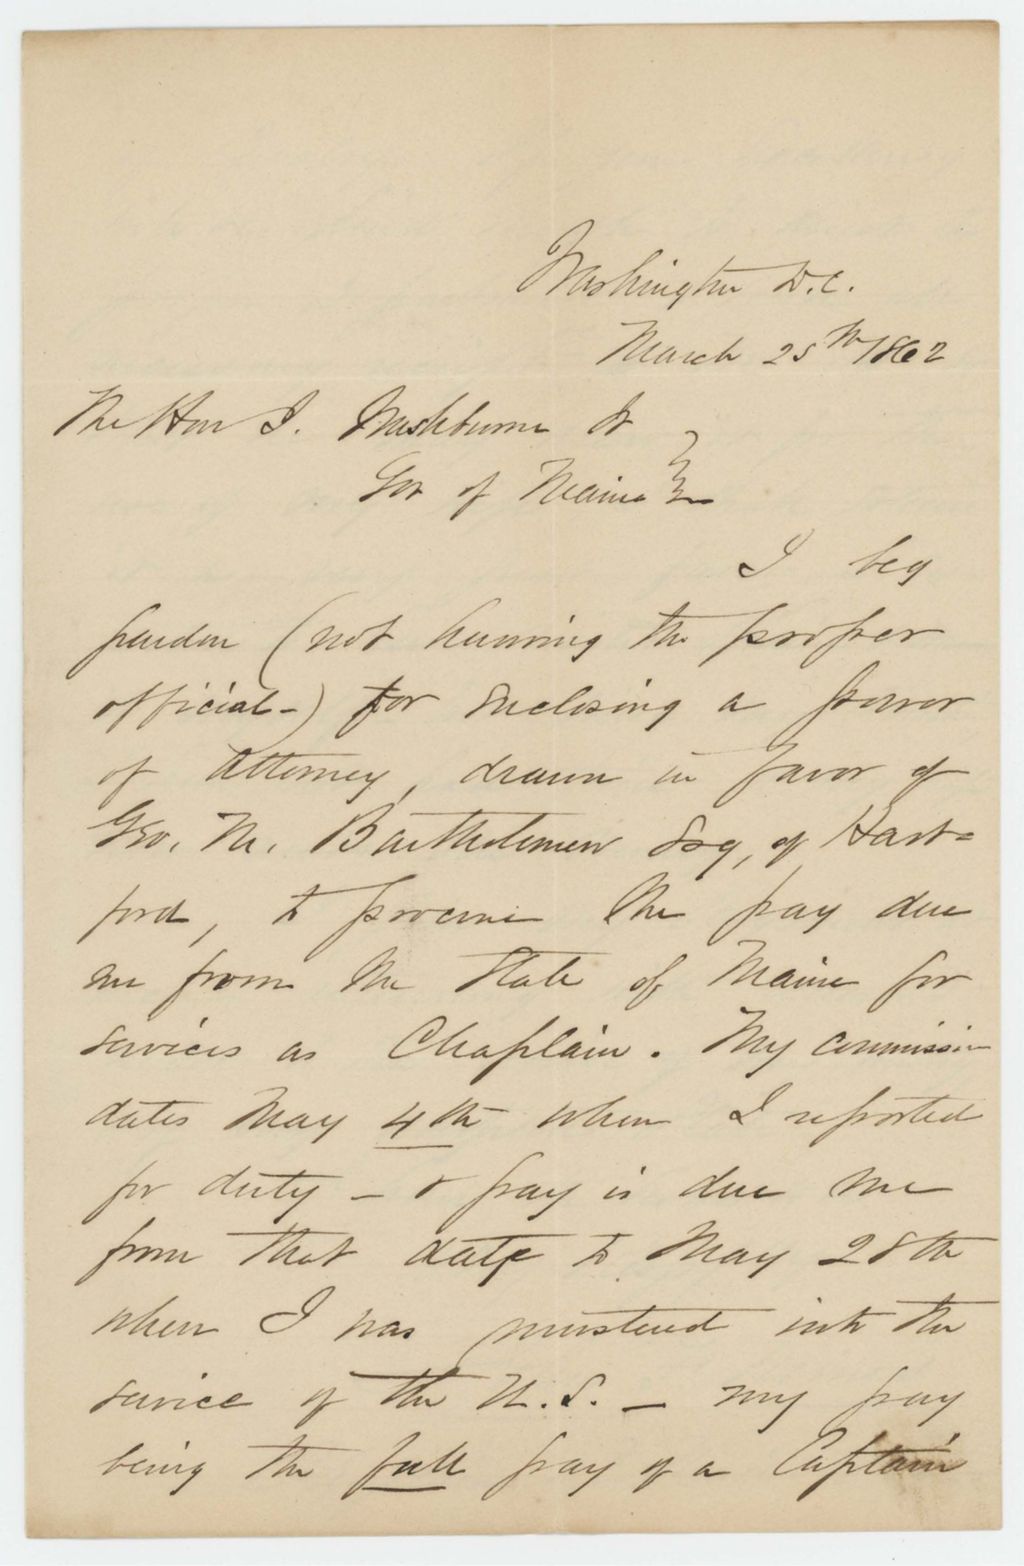 Washington D.C.
March 25th 1862
The Hon I. Washburne Jr
Gov of Maine
I beg
pardon (not knowing the proper
official-) for enclosing a power
of Attorney, drawn in favor of
Geo. M. Bartholomew Esq, of Hart=
ford, to procure the pay due
me from the State of Maine for
services as Chaplain. My commission
dates May 4th when I reported
for duty - & pay is due me
from that date to May 28th
when I was mustered into the
service of the U.S. - my pay
being the full pay of a Captain